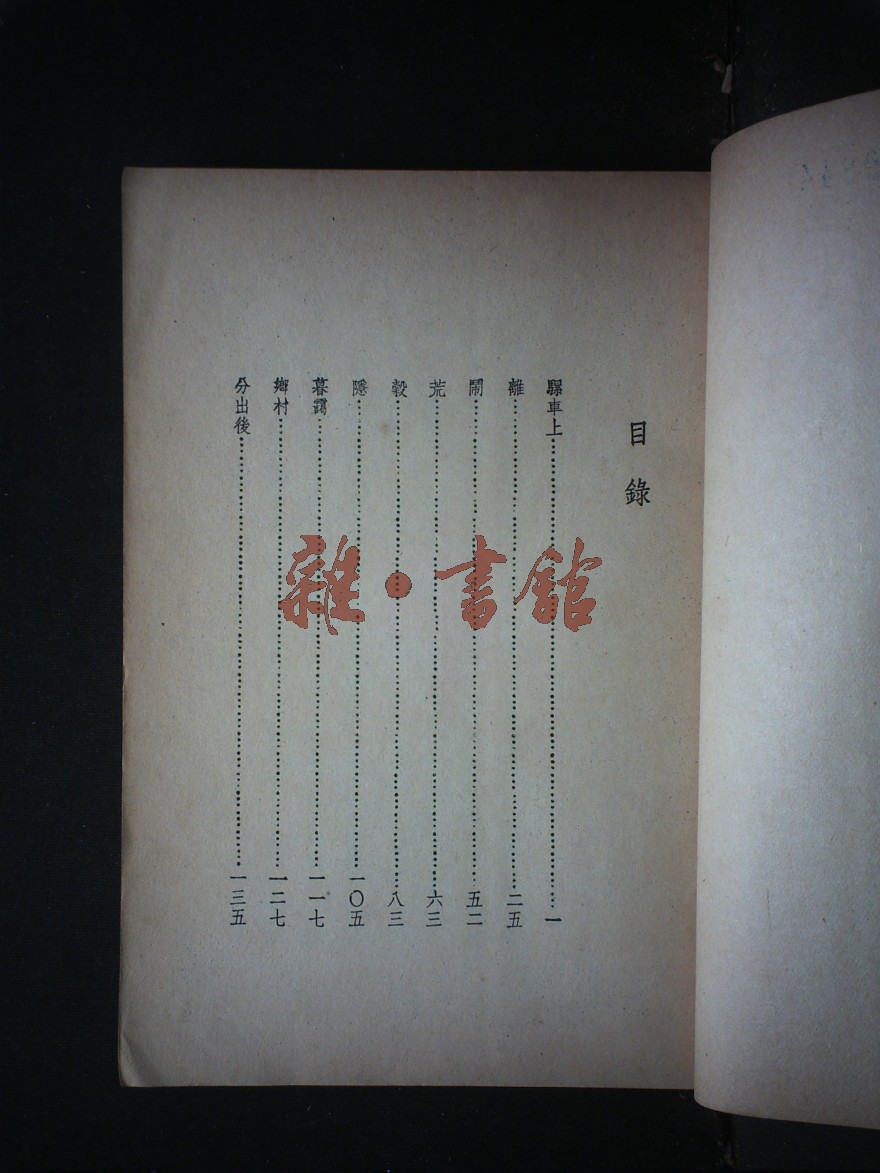 目錄
騾車上⋯⋯一
離⋯⋯二五
鬧⋯⋯五二
荒⋯⋯六三
穀⋯⋯八三
隱⋯⋯一〇五
暮靄⋯⋯一一七
鄉村⋯⋯一二七
分出後⋯⋯一三五
雜·書館